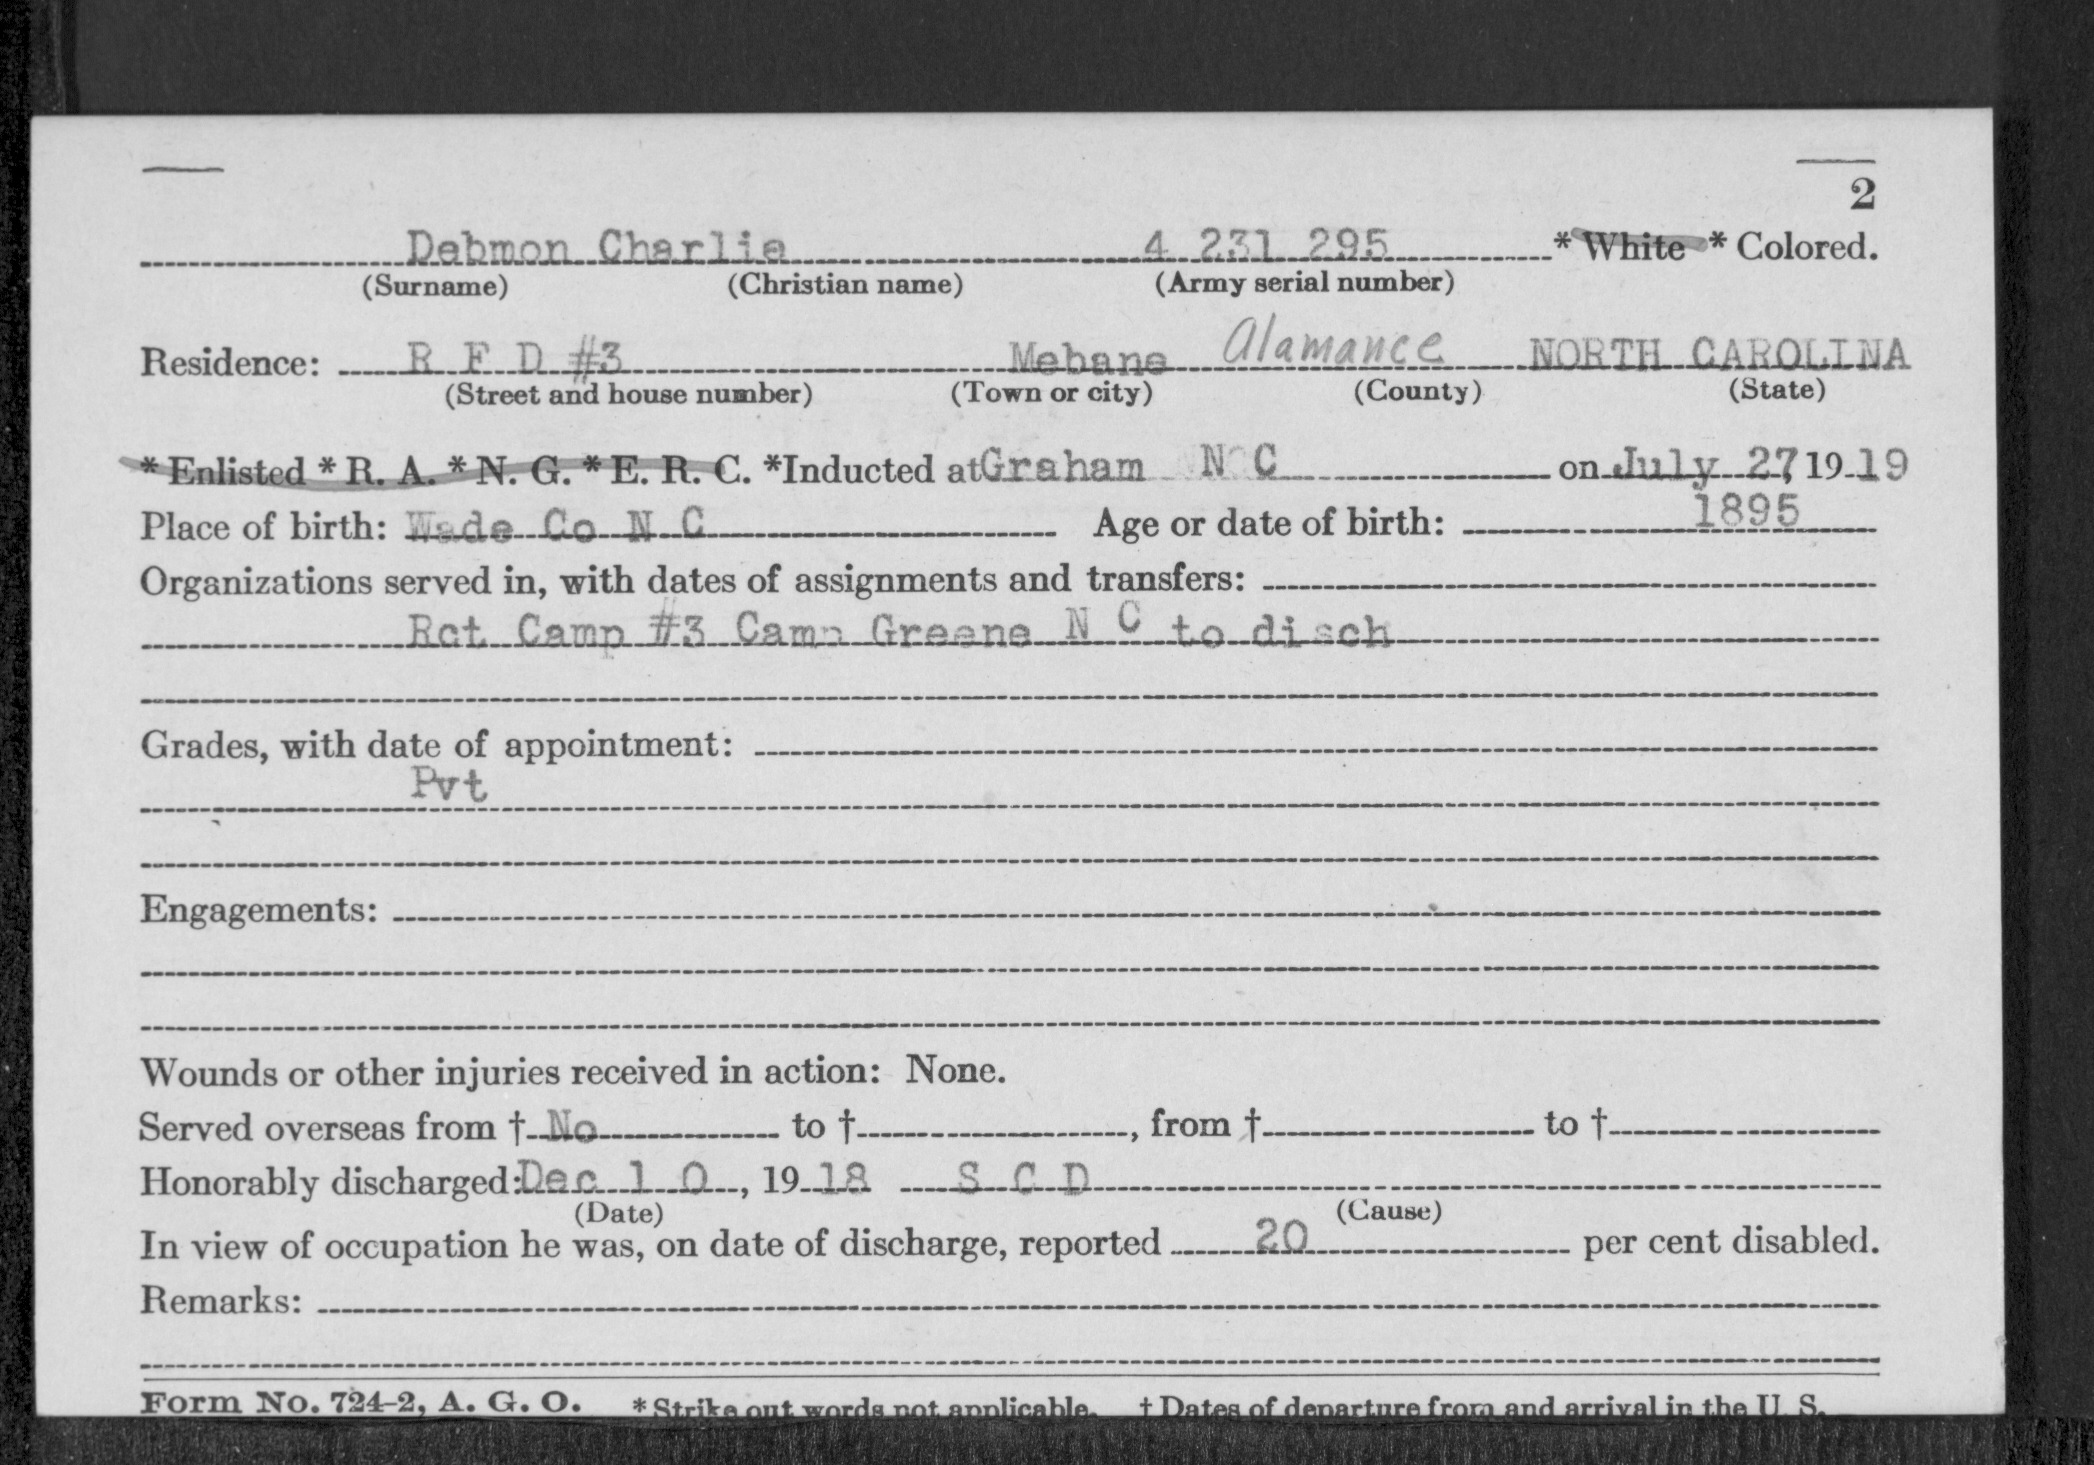 2
Debmon Charlie 4 231 295 * White * Colored.
(Surname) (Christian name) (Army serial number)
Residence: R F D #3 Mebane Alamance NORTH CAROLINA
(Street and house number) (Town or city) (County) (State)
* Enlisted * R. A. * N. G. * E. R. C. *Inducted at Graham N C on July 27, 19 19
Place of birth: Wade Co N C Age or date of birth: 1895
Organizations served in, with dates of assignments and transfers:
Rct Camp #3 Camp Greene N C to disch
Grades, with date of appointment:
Pvt
Engagements:
Wounds or other injuries received in action: None.
Served overseas from † No to †, from † to †
Honorably discharged: Dec 1 0, 19 18 S C D
(Date) (Cause)
In view of occupation he was, on date of discharge, reported 20 per cent disabled.
Remarks:
Form No. 724-2, A. G. O. * Strike out words not applicable. † Dates of departure from and arrival in the U. S.